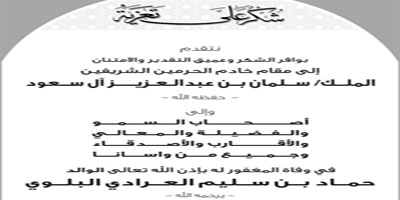 شكر على تعزية
نتقدم
بوافر الشكر وعميق التقدير والامتنان
إلى مقام خادم الحرمين الشريفين
الملك/ سلمان بن عبدالعزيز آل سعود
- حفظه الله -
وإلى
أصحاب السمو
والفضيلة والمعالي
والأقارب والأصدقاء
وجميع من واسانا
في وفاة المغفور له بإذن الله تعالى الوالد
حماد بن سليم العرادي البلوي
- يرحمه الله -